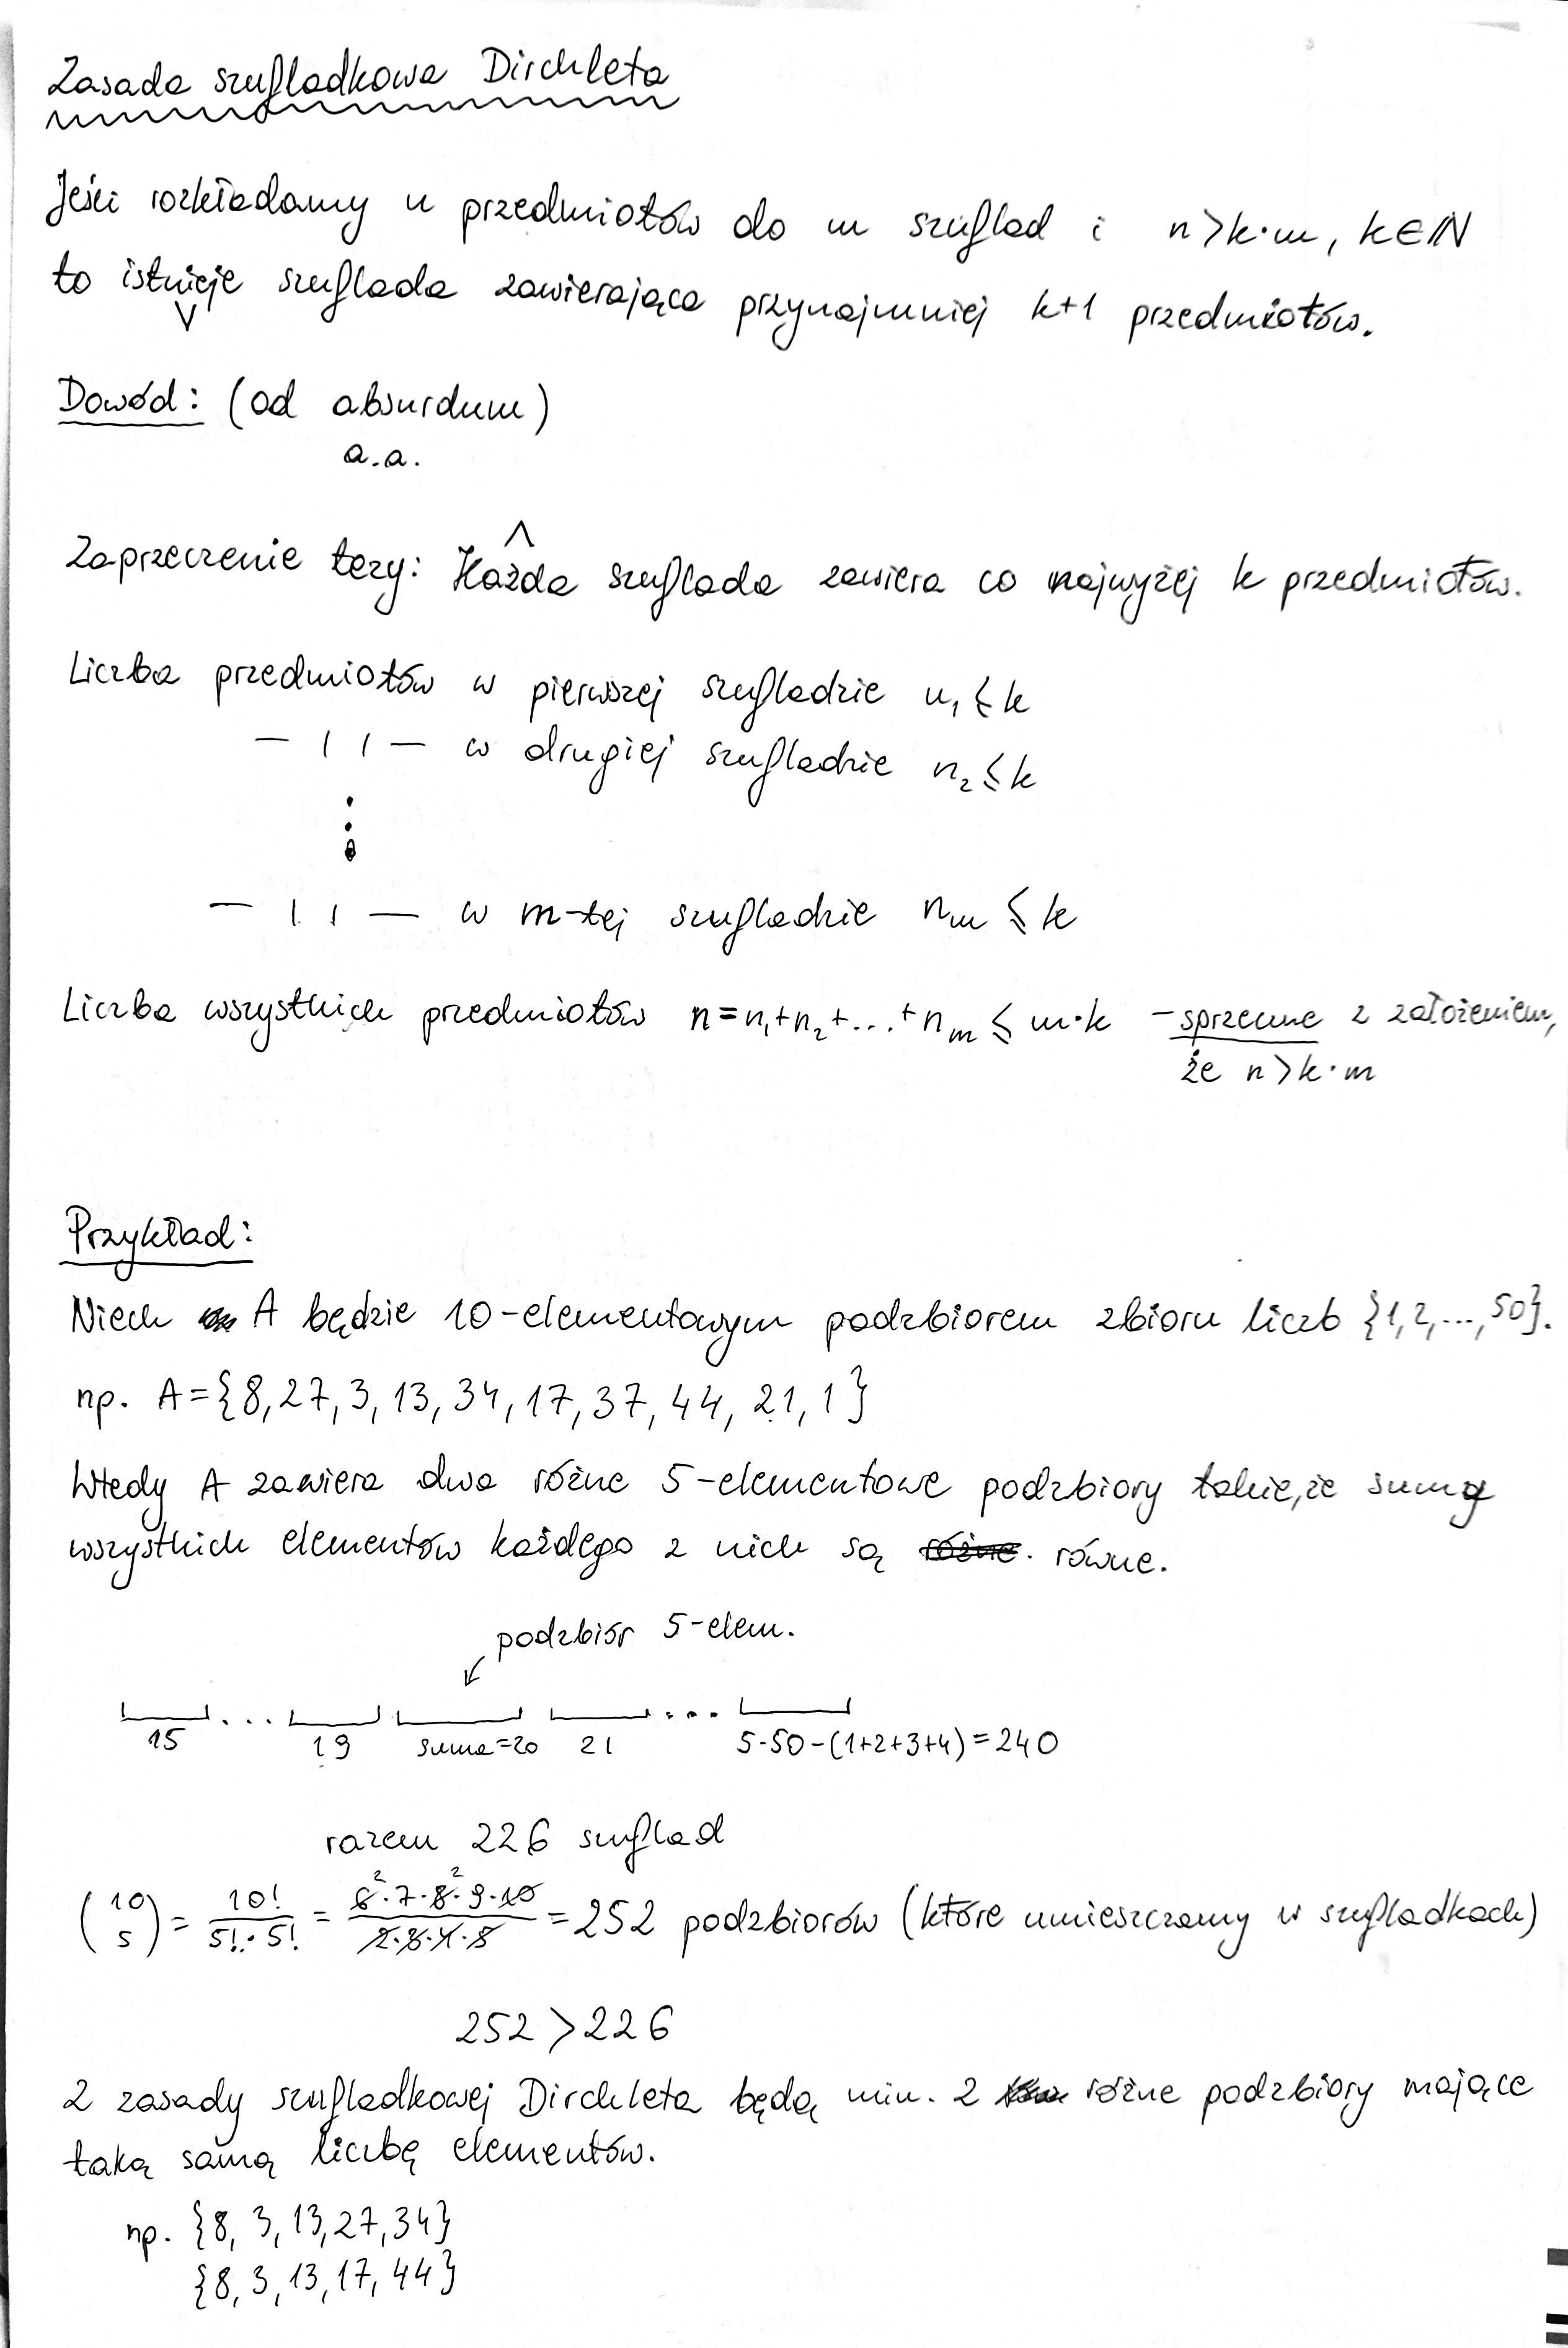 Zasada szufladkowa Dirchleta
Jeśli rozkładamy n przedmiotów do m szuflad i n>k·m, k∈ℕ
to istnieje szuflada zawierająca przynajmniej k+1 przedmiotów.
V
Dowód: (od absurdum)
a.a.
Λ
Zaprzeczenie tezy: Każda szuflada zawiera co najwyżej k przedmiotów.
Liczba przedmiotów w pierwszej szufladzie n₁ ≤ k
— ı ı — w drugiej szufladzie n₂ ≤ k
⋮
— ı ı — w m-tej szufladzie nₘ ≤ k
Liczba wszystkich przedmiotów n=n₁+n₂+...+nₘ ≤ m·k – sprzeczne z założeniem,
że n>k·m
Przykład:
Niech A będzie 10-elementowym podzbiorem zbioru liczb {1,2,...,50}.
np. A={8,27,3,13,34,17,37,44,21,1}
Wtedy A zawiera dwa różne 5-elementowe podzbiory takie,że sumy
wszystkich elementów każdego z nich są różne. równe.
podzbiór 5-elem.
15 ... 19 suma=20 21 ... 5·50-(1+2+3+4)=240
razem 226 szuflad
(10 5) = 10!/5!·5! = 6·7·8·9·10/2·3·4·5 = 252 podzbiorów (które umieszczamy w szufladkach)
252 > 226
Z zasady szufladkowej Dirchleta będą min. 2 różne podzbiory mające
taką samą liczbę elementów.
np. {8, 3, 13, 27, 34}
{8, 3, 13, 17, 44}